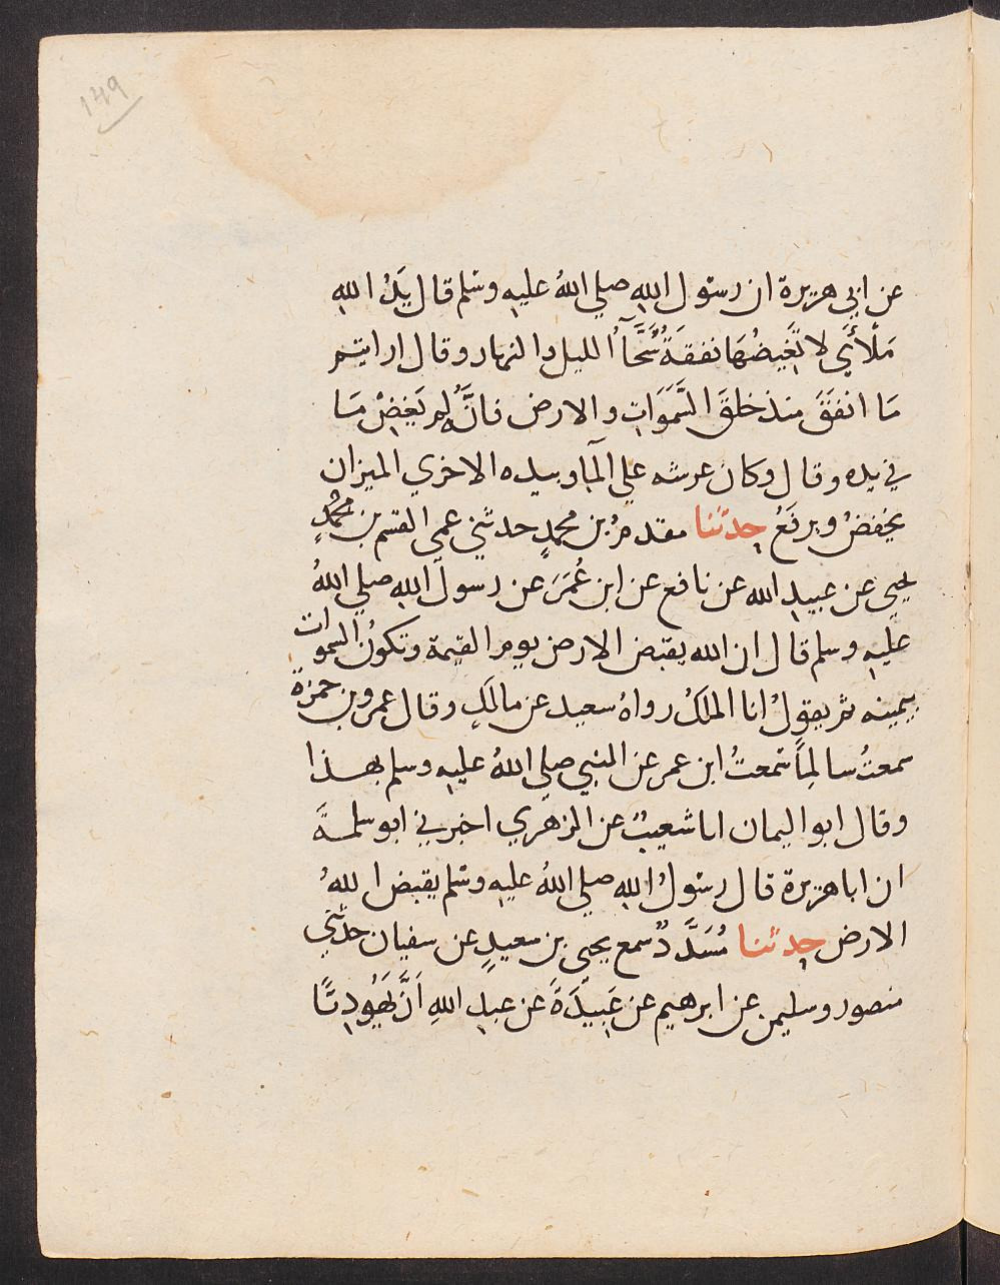 ١٤٩
عن ابي هريرة ان رسول الله صلي اللهُ عليه وسلم قال يَدُ الله
مَلْأَيَ لا تَغيضُهَا نفقةٌ سَّحَّآُ الليل والنهار وقال ارايتم
مَا انفَقَ منذ خلقَ السَّمَوَاتِ والارض فانَّهُ لم يَغِضْ مَا
في يده وقال وكان عرشه علي المآ وبيده الاخري الميزان
يخفضُ ويرفَعُ حدثنا مقدمُ بن محمدٍ حدثني عمي القسم بن محمدٍ
يحيي عن عبيد الله عن نافع عن ابن عُمَرَ عن رسول الله صلي اللهُ
عليه وسلم قال ان الله يقبض الارض يوم القيمة وتكونُ السموات
بيمينه ثم يقولُ انا الملكُ رواهُ سعيد عن مالكٍ وقال عمر وبن حمزة
سمعتُ سالماً سمعتُ ابن عمر عن النبي صلي اللهُ عليه وسلم بهذا
وقال ابو اليمان انا شعيبٌ عن الزهري اخبرني ابو سلمة
ان ابا هريرة قال رسولُ الله صلي اللهُ عليه وسلم يقبض اللهُ
الارض حدثنا مُسَدَّدٌ سمع يحيي بن سعيدٍ عن سفيان حدثني
منصور وسليمن عن ابرهيم عن عَبِيدَةَ عن عبد اللهِ اَنَّ يَهُودِيًّا